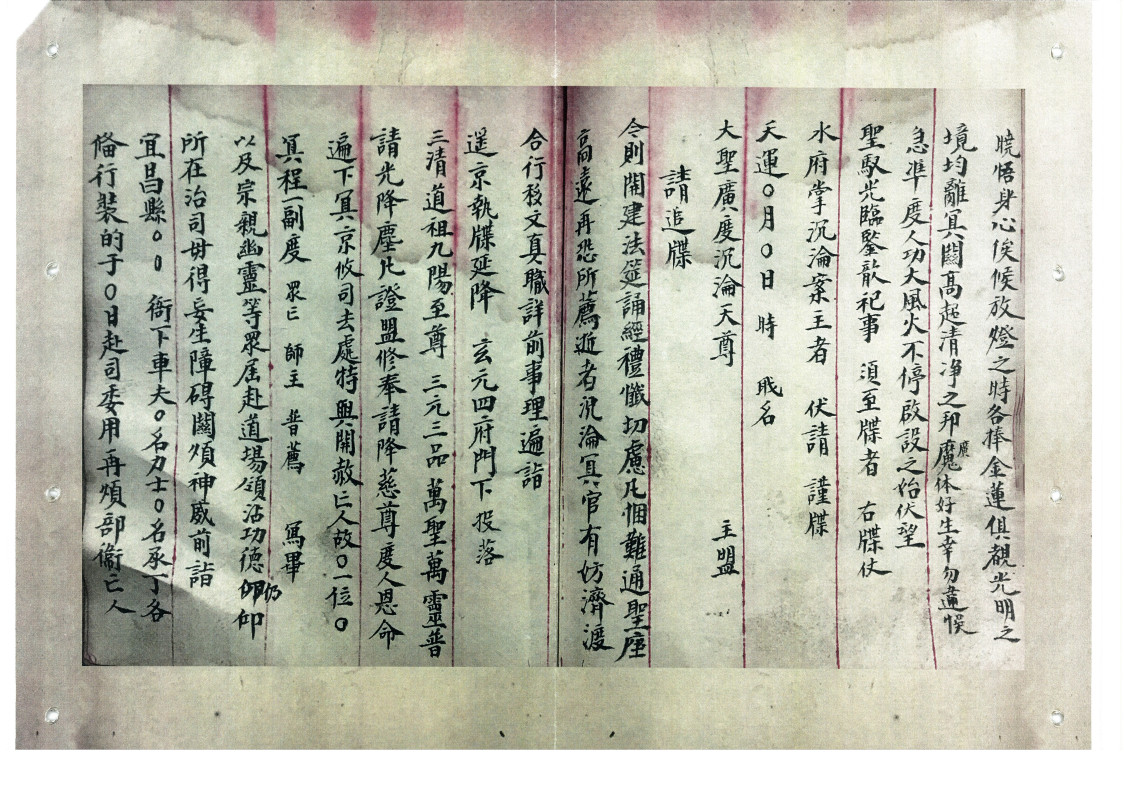 曉悟身心俟候放燈之時各捧金蓮俱觀光明之
境均離冥關高超清净之邦魔休好生幸勿違悞
廣
急準度人功大風火不停啟設之始伏望
聖馭光臨鑒歆祀事 須至牒者 右牒伏
水府掌沉淪案主者 伏請 謹牒
天運〇月〇日 時 戝名
大聖廣度沉淪天尊 主盟
請追牒
令則開建法筵誦經禮懺切慮凡悃難通聖座
高遠再恐所薦逝者沉淪冥官有妨濟渡
合行移文真職詳前事理遍詣
遥京執牒延降 玄元四府門下投落
三清道祖九陽至尊 三元三品萬聖萬靈普
請光降塵凡證盟修奉請降慈尊度人恩命
遍下冥京攸司去處特興開赦亡人故〇一位〇
冥程一副度 眾亡 師主 普薦 寫畢
以及宗親幽靈等眾届赴道場領沾功德仰仰
仍
所在治司毋得妄生障碍關煩神威前詣
宜昌縣〇〇 衙下車夫〇名力士〇名承丁各
偹行裝的于〇日赴司委用再煩部衞亡人